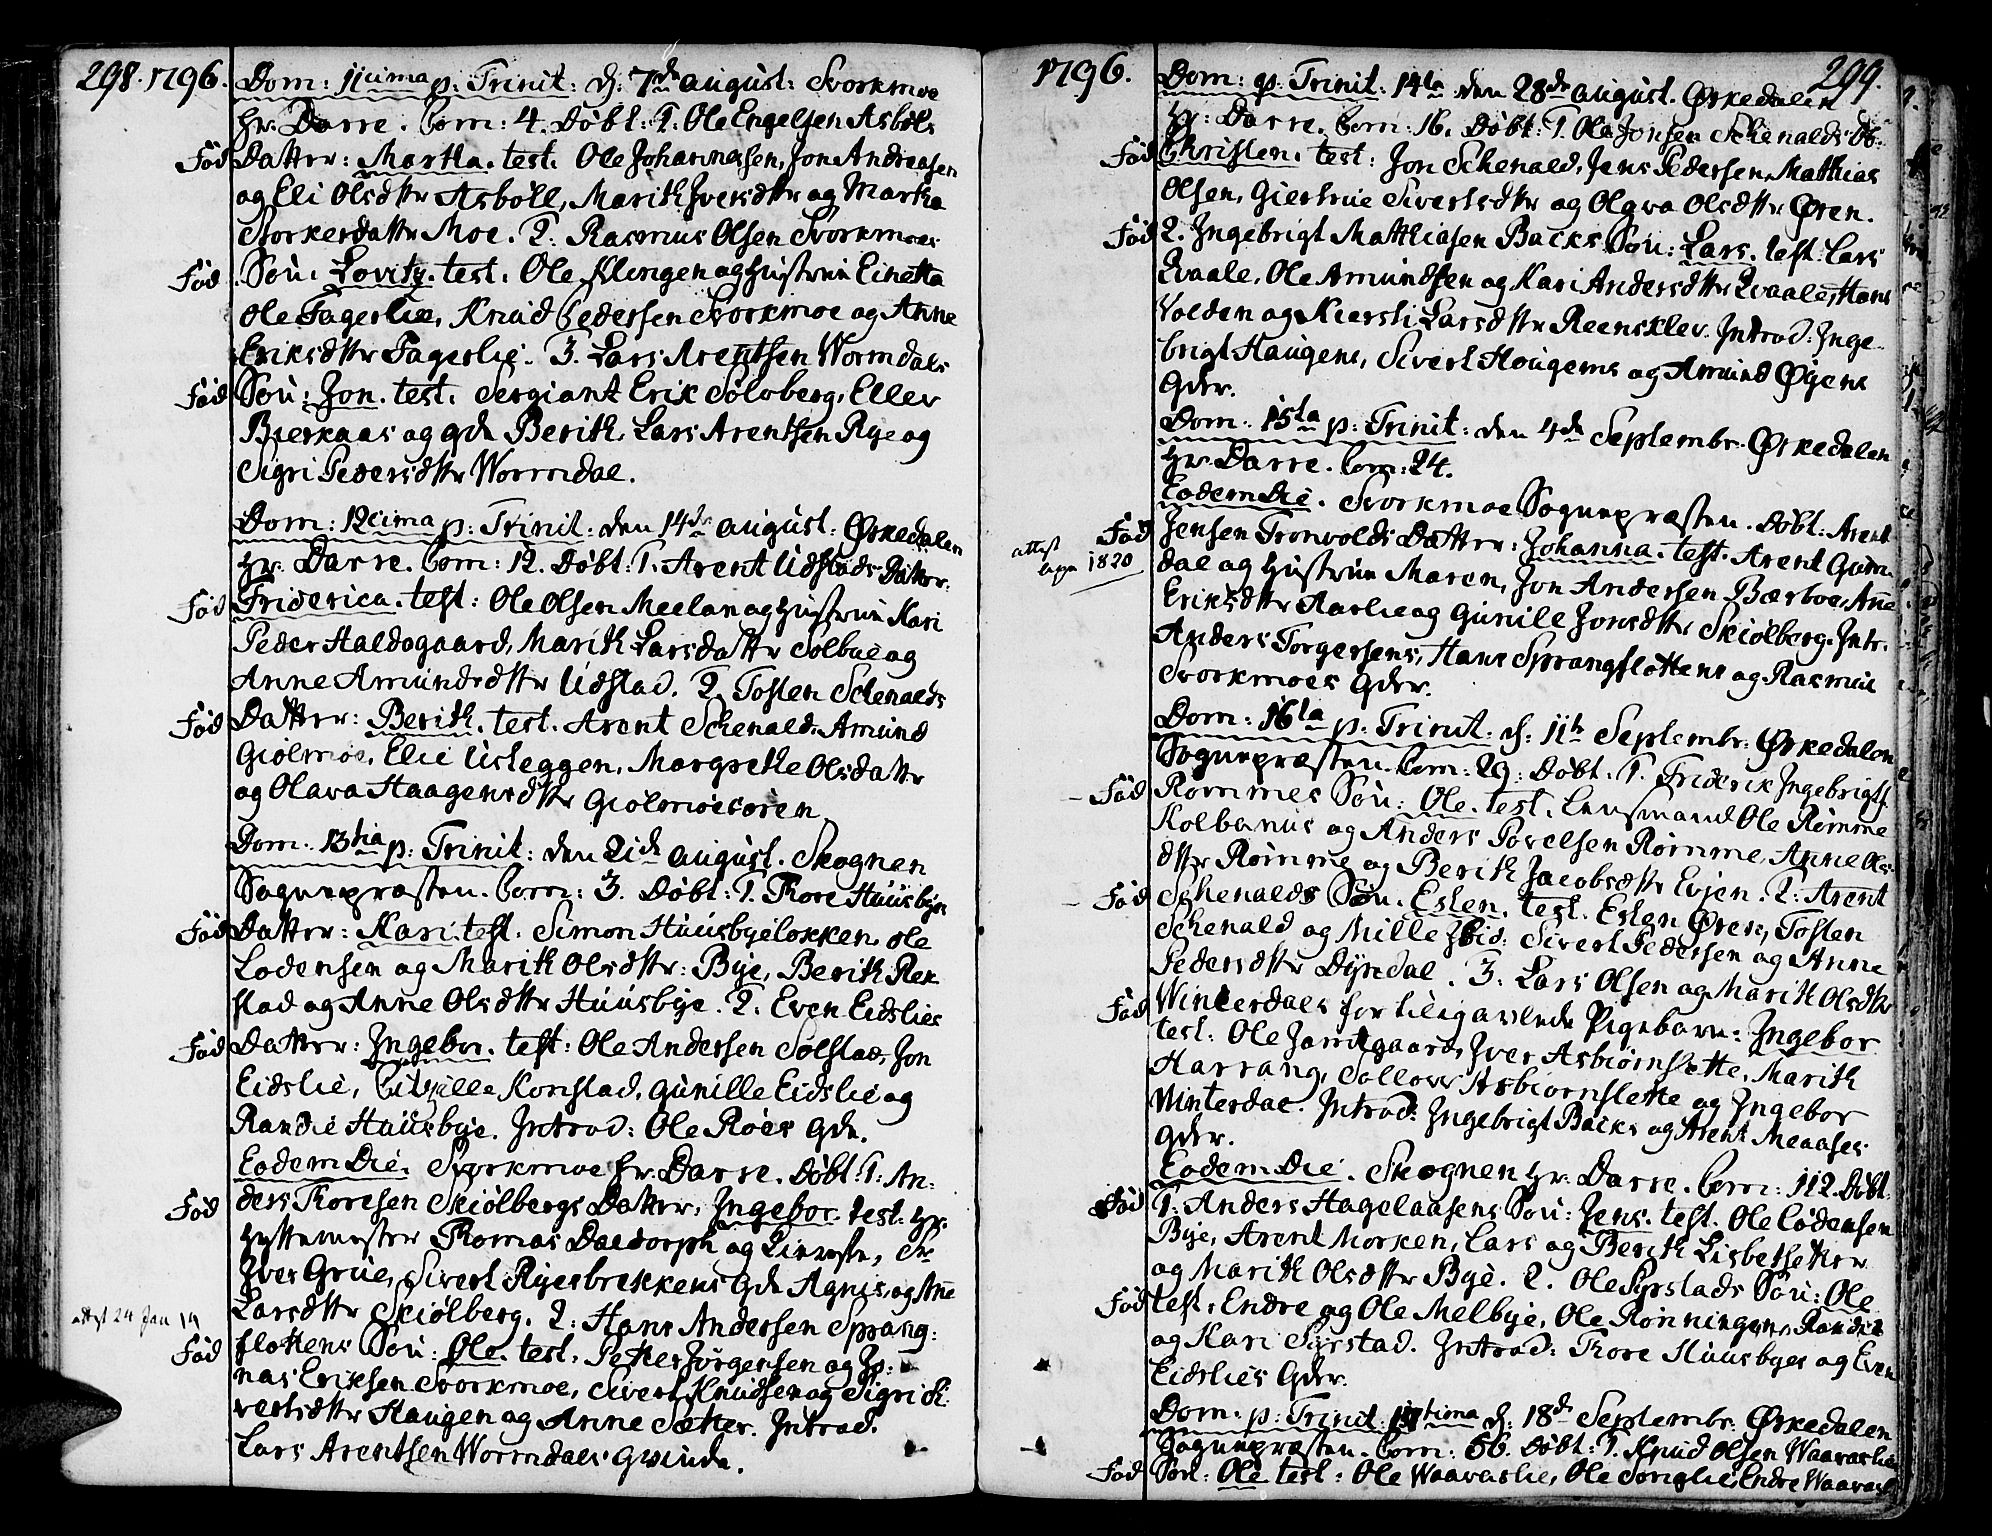 298. 1796.
Dom: 11cima p: Trinit: d: 7de august: Svorkmoe
Hr. Darre. Com: 4. Døbt: 1. Ole Engelsen Asbøls
Fød Datter: Martha. test. Ole Johannessen, Jon Andreasen
og Eli Olsdttr Asbøll, Marith Jversdttr og Martha
Storkersdattr Moe. 2: Rasmus Olsen Svorkmoes
Fød Søn: Lovitz. test. Ole Klingen og Hustrue Einetta
Ole Fagerlie, Knud Pedersen Svorkmoe og Anne
Eriksdttr Fagerlie. 3. Lars Arentsen Wormdals
Fød Søn: Jon. test. Sergiant Erik Solberg, Ellev
Bierkaas og gde Berith, Lars Arentsen Rye og
Sigri Pedersdttr Wormdal.
Dom: 12cima p: Trinit: den 14de august: Ørkedalen
Hr. Darre. Com: 12. Døbt: 1. Arent Udstads Datter.
Fød Friderica. test: Ole Olsen Meelan og Hustrue Kari
Peder Haldogaard, Marith Larsdattr Solbue og
Anne Amundsdttr Udstad. 2. Tosten Schenalds
Fød Datter: Berith. test. Arent Schenald, Amund
Giølmoe, Elie Usteggen, Margrethe Olsdattr
og Olava Haagensdttr Giolmoesøren.
Dom: 13tia p: Trinit: den 21de august. Skognen
Sognepræsten. Com: 3. Døbt: 1. Thore Huusbyes
Fød Datter: Kari. test. Simon Huusbyeløkken, Ole
Lodensen og Marith Olsdttr: Bye, Berith Rek
stad og Anne Olsdttr Huusbye. 2. Even Eidslies
Fød Datter: Jngebor. test: Ole Andersen Solstad, Jon
Eidslie, Konstad, Gunille Eidslie og
Randie Huusbye. Jntrod: Ole Roes Gde.
Eodem Die. Svorkmoe Hr. Darre. Døbt: 1: An-
Fød ders Thoresen Skiølbergs Datter, Jngebor. test: Hr.
Hyttemester Thomas Daldorph og Lieveste, Sr
Jver Grue, Sivert Ryesbrekkens Gde Agnis, og Añe
Larsdttr Skiølberg. 2: Hans Andersen Sprang:
attest 24 Jan 19
Fød flottens Søn: Ole. test. Petter Jørgensen og Jo:
nas Eriksen Svorkmoe, Sivert Knudsen og Sigri Si-
vertsdttr Haugen og Anne Sæther. Jntrod.
Lars Arentsen Wormdals Qvinde.
1796. 299.
Dom: p: Trinit: 14ta den 28de august. Ørkedalen
Hr: Darre. Com: 16. Døbt: 1. Ole Jonsen Schenalds Dr.
Fød Christen. test: Jon Schenald, Jens Pedersen, Matthias
Olsen, Giertrue Sivertsdttr og Olava Olsdttr Øren.
Fød 2. Jngebrigt Matthiasen Backs Søn: Lars. test: Lars
Evaale, Ole Amundsen og Kari Andersdttr Evaale, Hans
Volden og Kiersti Larsdttr Reensklev. Jntrod: Jnge-
brigt Haugens, Sivert Hougens og Amund Øyens
Gder.
Dom: 15ta p: Trinit: den 4de Septembr: Ørkedalen
Hr: Darre. Com: 24.
Eodem Die. Svorkmoe Sognepræsten. Døbt: Arent
Fød Jensen Tronvolds Datter: Johanna. test. Arent Gum
attest 1820
dal og Hustrue Maren, Jon Andersen Bærboe, Añe
Eriksdttr Aarlie og Gunile Jonsdttr Skiølberg. Jntr.
Anders Torgersens, Hans Sprangflottens og Rasmus
Svorkmoes Gder.
Dom: 16ta p: Trinit: d: 11te Septembr: Ørkedalen
Sognepræsten. Com: 29: Døbt: 1. Friderik Jngebrigts.
Fød Rømmes Søn: Ole. test. Lensmand Ole Rømme
Kolbanus og Anders Povelsen Rømme, Anne Ols-
dttr Rømme og Berith Jacobsdttr Evjen. 2: Arent
Fød Schenalds Søn. Esten. test. Esten Øren, Tosten
Schenald og Mille Jbid: Sivert Pedersen og Anne
Pedersdttr Dyrdal. 3. Lars Olsen og Marith Olsdttr
Fød Winterdals for tilig avlede Pigebarn: Jngebor.
test: Ole Jamtgaard, Jver Asbiørnslette, Marith
Harrang, Sollove Asbiørnslette og Jngebor
Winterdal. Jntrod: Jngebrigt Backs og Arent Meaases
Gder.
Eodem Die. Skognen Hr. Darre. Com: 112. Døbt:
Fød 1. Anders Hagelaasens Søn: Jens. test. Ole Lodensen
Bye, Arent Morken, Lars og Berith Lisbethsetter
og Marith Olsdttr Bye. 2. Ole Syrstads Søn: Ole
Fød test: Endre og Ole Melbye, Ole Rønningen, Randie
og Kari Syrstad. Jntrod: Thore Huusbyes og Even
Eidslies Gder.
Dom: p: Trinit: 17tima d: 18de Septembr: Ørkedalen
Sognepræsten. Com: 56. Døbt: 1. Knud Olsen Waavaslies
Fød Søn: Ole test: Ole Waavaslie, Ole Songlie, Endre Waavasl